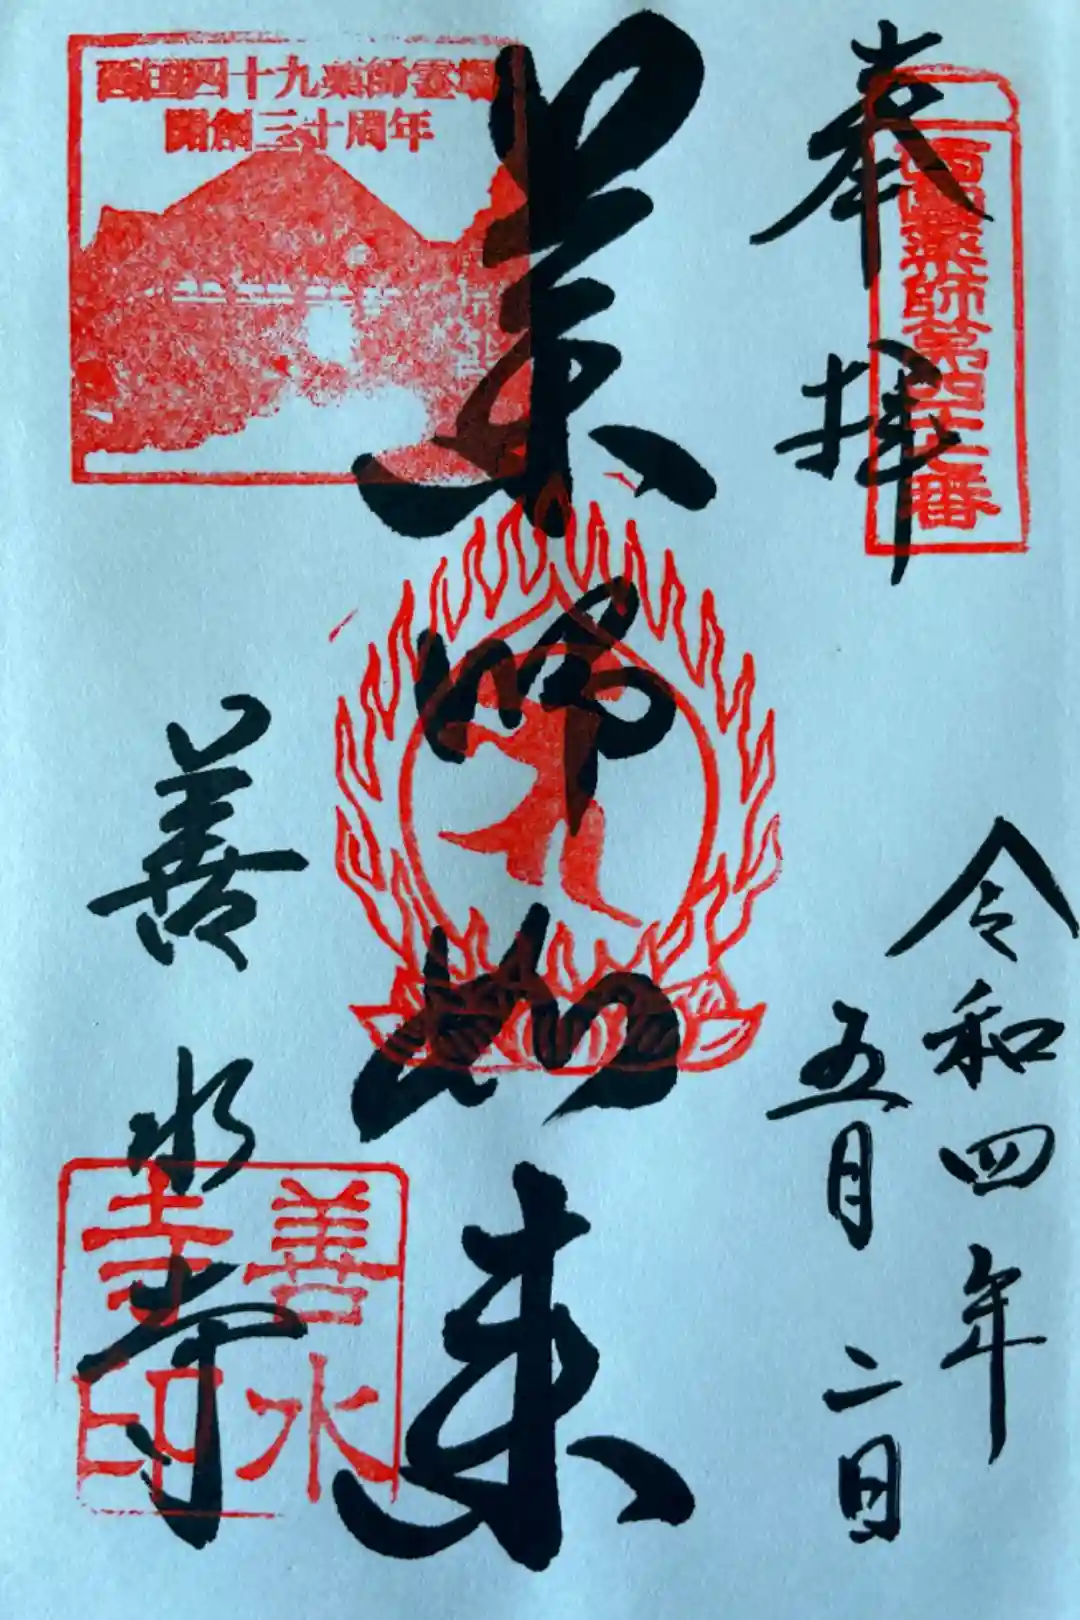 奉拝
西国薬師第四十七番
令和四年
五月二日
薬師如来
西国四十九薬師霊場
開創三十周年
善水寺
善水
寺印